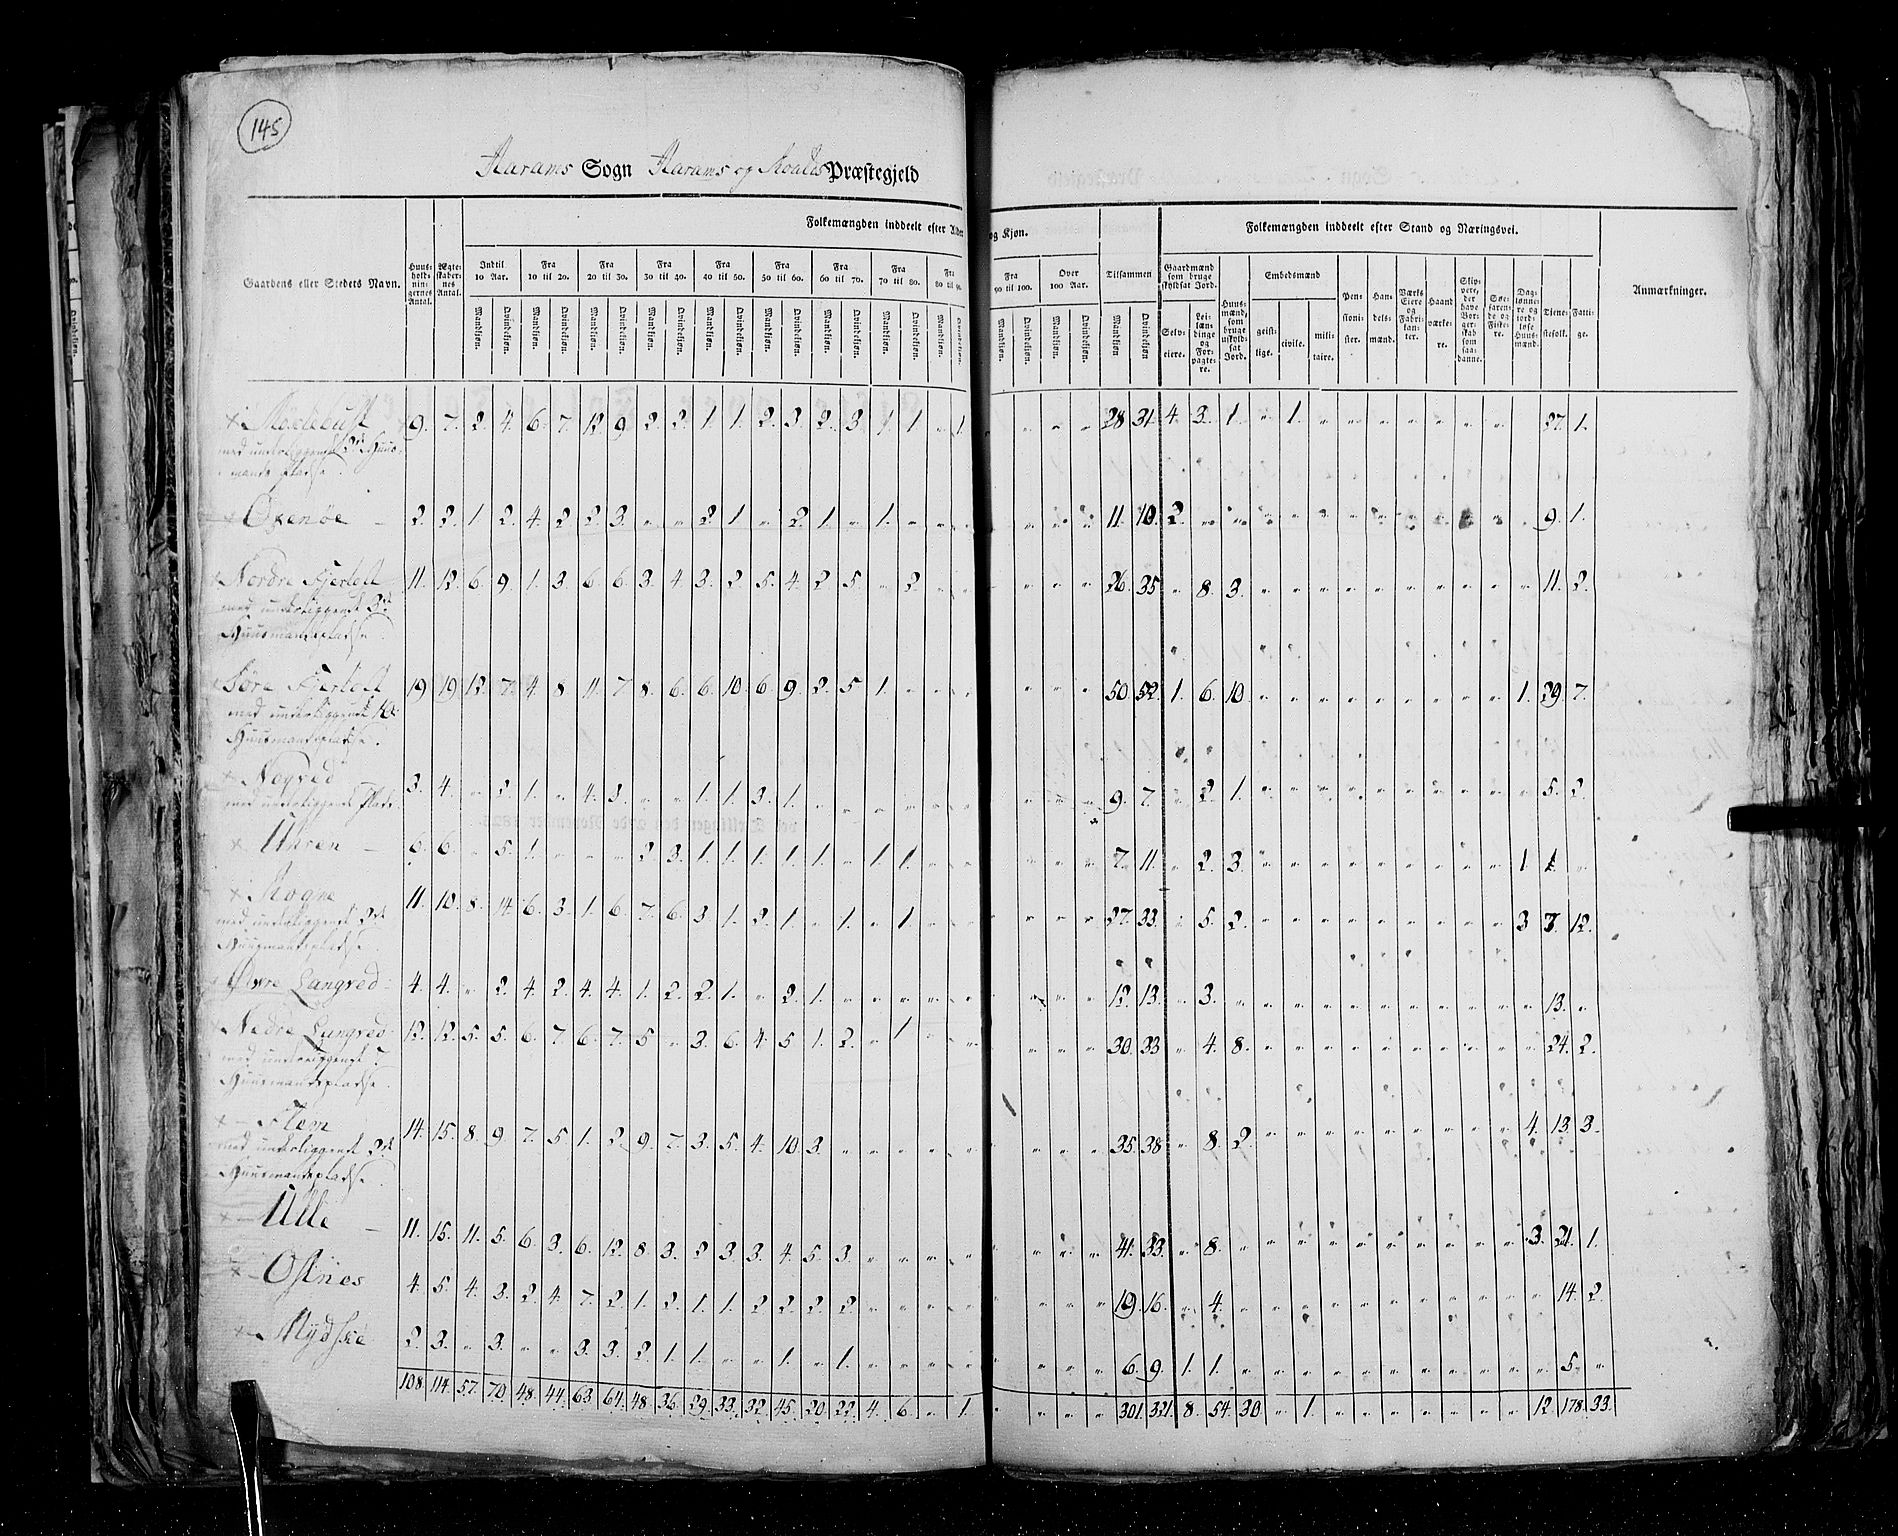 145
Aarams Sogn Aarams og Roalds Præstegjeld
Folkemængden inddeelt efter Alder og Kjøn.
Folkemængden inddeelt efter Stand og Næringsvei.
Gaardens eller Stedets Navn.
Huus-holdnin-gernes Antal.
Ægte-skaber-nes Antal.
Indtil 10 Aar.
Fra 10 til 20.
Fra 20 til 30.
Fra 30 til 40.
Fra 40 til 50.
Fra 50 til 60.
Fra 60 til 70.
Fra 70 til 80.
Fra 80 til 90.
Fra 90 til 100.
Over 100 Aar.
Tilsammen
Mandkjøn. Qvindekjøn.
Gaardmænd som bruge skyldsat Jord.
Selv-eiere.
Lei-læn-dinge og For-pagte-re.
Huus-mænd, som bruge uskyld-sat Jord.
Embedsmænd
geist-lige. civile. mili-taire.
Pen-sioni-ster.
Han-dels-mænd.
Værks Eiere og Fabri-kan-ter.
Haand værke-re.
Skip-pere, der have Bor-gerskab som saa-danne.
Søe-farende og Fiske-re.
Dag-lønnere og jord-løse Huus-mænd.
Tiene-stefolk.
Fatti-ge.
Anmærkninger.
× Røsebust 9. 7. 2. 4. 6. 7. 12. 9. 2. 2. 1. 1. 2. 3. 2. 3. 1. 1. " 1. " " " " 28 31. 4. 3. 1. " 1. " " " " " " " " 27. 1.
med underliggende 2de Huus-
mands Pladse.
× Oxenøe - 2. 2. 1. 2. 4. 2. 2. 3. " " 2 1. " 2. 1. " 1. " " " " " " " 11. 10. 2. " " " " " " " " " " " " 9. 1.
× Nordre Fjertoft 11. 12. 6. 9. 1. 3. 6. 6. 3. 4. 3. 2. 5. 4. 2. 5. " 2. " " " " " " 26. 35. " 8. 3. " " " " " " " " " " 11. 2.
med underliggende 3de
Huusmandspladse.
Søre Fjertoft 19 19. 12. 7. 4. 8 11. 7. 8. 6. 6. 10. 6. 9. 2. 5. 1. " " " " " " " 50. 52. 1. 6. 10. " " " " " " " " " 1. 29. 7.
med underliggende 10
Huusmandspladse.
× Nogred - 3. 4. " 2 1. " 4. 3. " " 1. 1. 3. 1. " " " " " " " " " " 9. 7. " 2. 1. " " " " " " " " " " 5. 2.
med underliggende Plads.
× Uhren - 6. 6. " 5. 1. " " " 2. 3. 1. 1. 1. 1. 1. " 1. 1. " " " " " " 7. 11. " 2. 3. " " " " " " " " " 1 1. "
× Rogne 11. 10. 8. 14. 6. 3. 1. 6. 7. 6. 3 1. 2. 1. " 1. " 1. " " " " " " 27. 33. " 5. 2. " " " " " " " " " 3 7. 12.
med underliggende 2de
Huusmandspladse.
Øvre Langred 4. 4. " 2. 4. 2. 4. 4. 1. 2. 2. 1. " 2. 1. " " " " " " " " " 12. 13. " 3. " " " " " " " " " " " 13. "
× Nedre Langred 12. 12. 5. 5. 6. 7. 6. 7. 5. " 3. 6. 4. 5 1. 2. " 1 " " " " " " 30. 33 " 4. 8. " " " " " " " " " " 24. 2.
med underliggende 7
Huusmandspladse.
× - Flem 14. 15. 8. 9. 7. 5. 1. 2. 9. 7. 3. 5. 4. 10. 3. " " " " " " " " " 35. 38 " 8. 2. " " " " " " " " " 4. 13. 3.
med underliggende 2de
Huusmandspladse.
× - Ulle - 11. 15. 11. 5. 6. 3. 6. 12. 8. 3. 2 3. 3. 4. 5. 3. " " " " " " " " 41. 33. " 8. " " " " " " " " " " 3. 21. 1.
× Ostnes 4. 5. 4. 3. 2. 4. 7. 2. 1. 2. 1. 1. 2. 2. 2. 2. " " " " " " " " 19. 16. " 4. " " " " " " " " " " " 14. 2.
× Mydske 2. 3. " 3. " " 3. 3. 2. 1. 1. " " 1. " 1. " " " " " " " " 6. 9. 1. 1. " " " " " " " " " " " 5. "
108. 114. 57. 70. 48. 44. 63. 64. 48. 36. 29. 33. 32. 45. 20. 22. 4. 6. " 1. " " " " 301. 321. 8. 54. 30 " 1. " " " " " " " 12 178. 33.